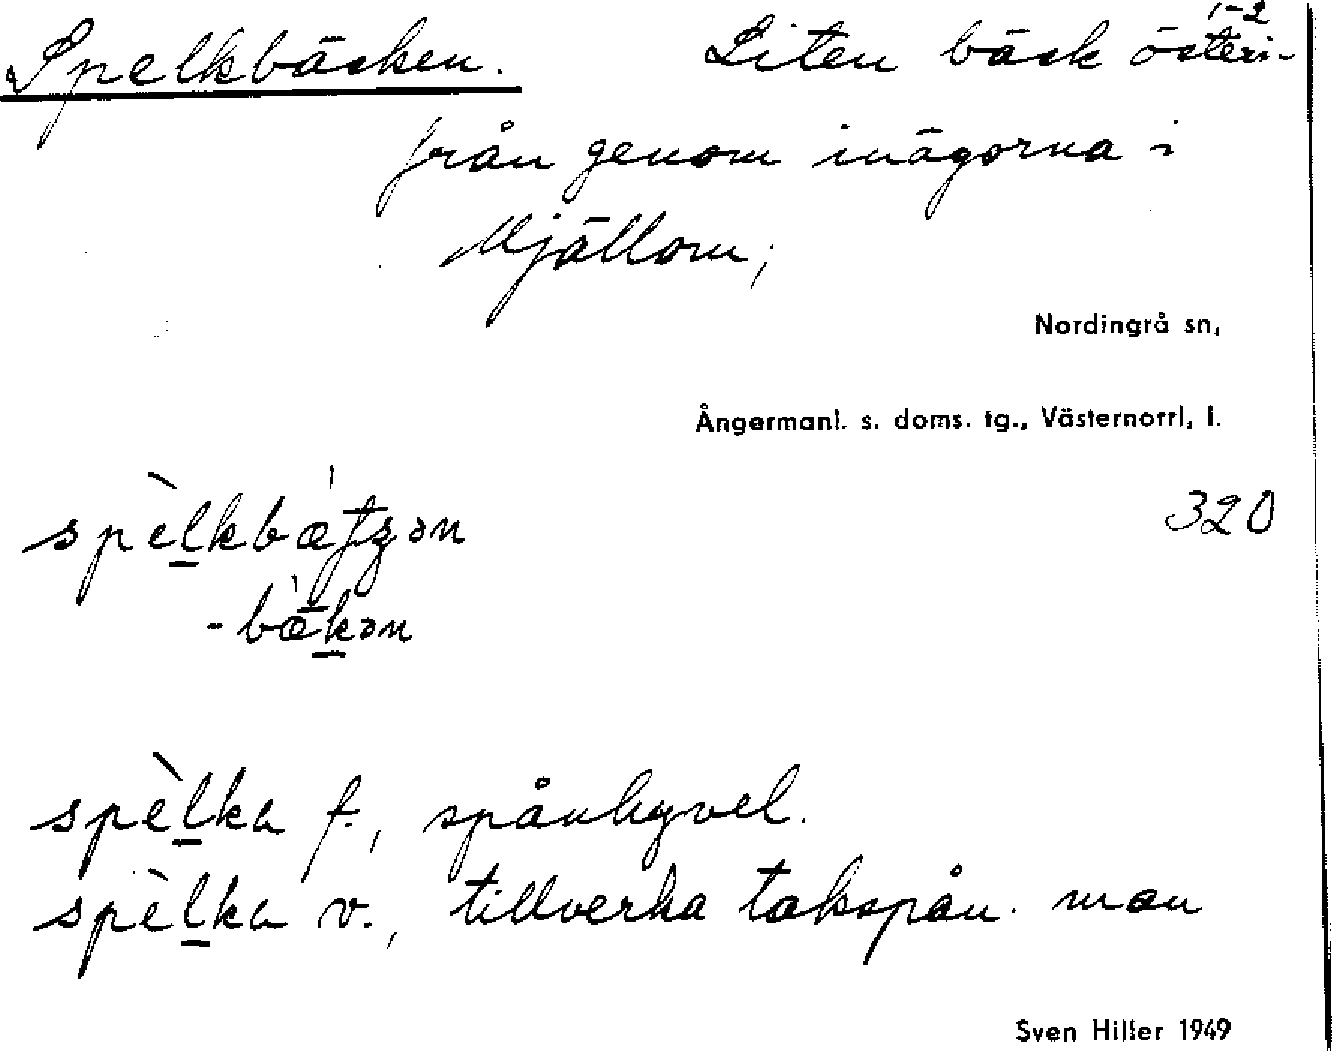 1-2
Spelkbäcken. Liten bäck österi-
från genom inägorna i
Mjällom;
Nordingrå sn,
Ångermanl. s. doms. tg., Västernorrl, l.
320
-bæ̀kən
spèlka f., spånhyvel.
spèlka v., tillverka takspån. man
Sven Hiller 1949